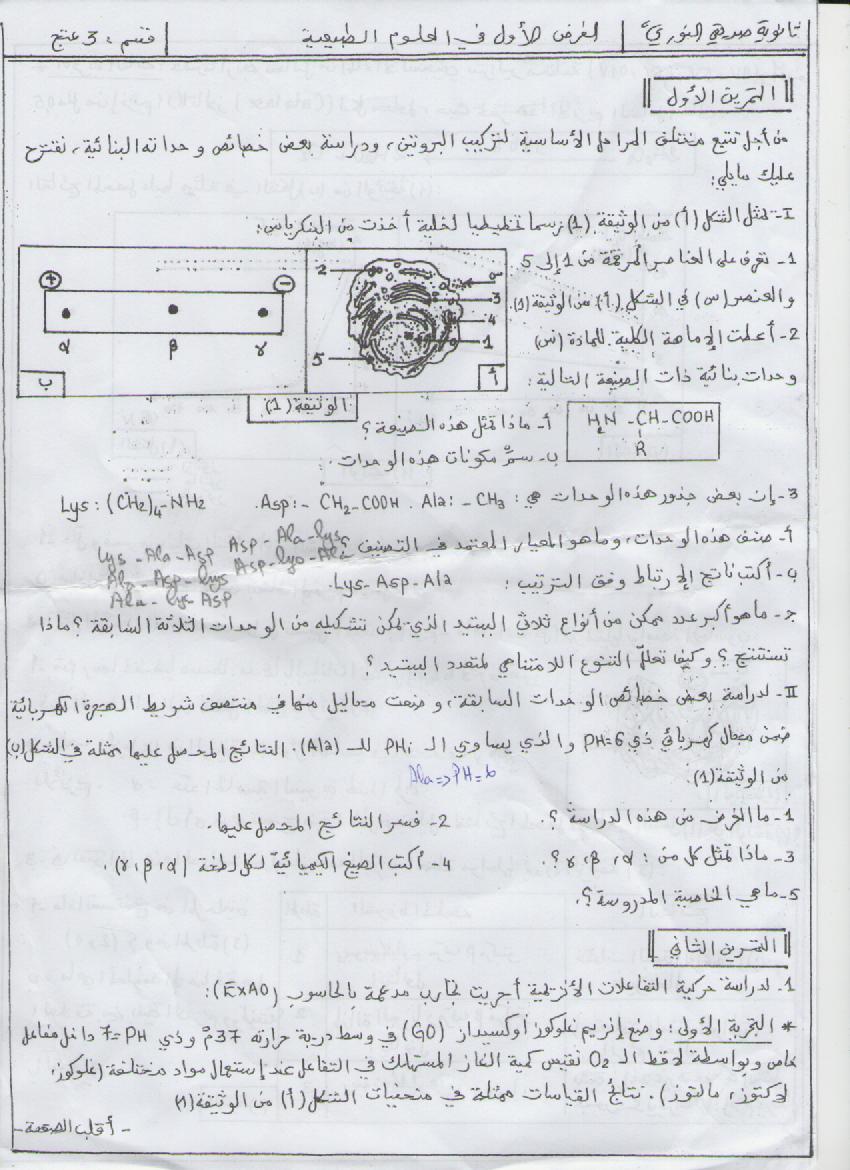 ثانوية صديقي النوري الفرض الأول في العلوم الطبيعية قسم: 3 ع تج
التمرين الأول
من أجل تتبع مختلف المراحل الأساسية لتركيب البروتين، ودراسة بعض خصائص وحداته البنائية، نقترح
عليك مايلي:
I- تمثل الشكل (أ) من الوثيقة (1) رسما تخطيطيا لخلية أخذت من البنكرياس:
1- تعرف على العناصر المرقمة من 1 إلى 5
والعنصر (س) في الشكل (أ) من الوثيقة (1).
2- أعطت الإماهة الكلية للمادة (س)
وحدات بنائية ذات الصيغة التالية:
+ − α β γ ب
2 س 3 4 1 5 أ
الوثيقة (1)
H₂N - CH - COOH
R
أ- ماذا تمثل هذه الصيغة؟
ب- سمّ مكونات هذه الوحدات.
3- إن بعض جذور هذه الوحدات هي: Ala: - CH₃ . Asp: - CH₂-COOH . Lys: (CH₂)₄-NH₂
أ- صنف هذه الوحدات، وماهو المعيار المعتمد في التصنيف
Lys - Ala - Asp Asp - Ala - Lys
ب- أكتب ناتج الإرتباط وفق الترتيب: Lys- Asp- Ala.
Ala - Asp - Lys Asp - Lys - Ala
Ala - Lys - Asp
ج- ماهو أكبر عدد ممكن من أنواع ثلاثي الببتيد الذي يمكن تشكيله من الوحدات الثلاثة السابقة؟ ماذا
تستنتج؟ وكيف تعلل التنوع اللامتناهي لمتعدد الببتيد؟
II- لدراسة بعض خصائص الوحدات السابقة، وضعت محاليل منها في منتصف شريط الهجرة الكهربائية
ضمن مجال كهربائي ذي PH=6 والذي يساوي الـ PHi للـ (Ala). النتائج المحصل عليها ممثلة في الشكل (ب)
من الوثيقة (1).
Ala => PH = 6
1- ما الغرض من هذه الدراسة؟. 2- فسر النتائج المحصل عليها.
3- ماذا تمثل كل من: α، β، γ؟. 4- أكتب الصيغ الكيميائية لكل لطخة (α، β، γ).
5- ماهي الخاصية المدروسة؟.
التمرين الثاني
1. لدراسة حركية التفاعلات الأنزيمية أجريت تجارب مدعمة بالحاسوب (ExAO):
* التجربة الأولى: وضع إنزيم غلوكوز أوكسيداز (GO) في وسط درجة حرارته 37م° وذي PH=7 داخل مفاعل
خاص وبواسطة لاقط الـ O₂ نقيس كمية الغاز المستهلك في التفاعل عند إستعمال مواد مختلفة (غلوكوز،
لاكتوز، مالتوز). نتائج القياسات ممثلة في منحنيات الشكل (أ) من الوثيقة (1)
- أقلب الصفحة -